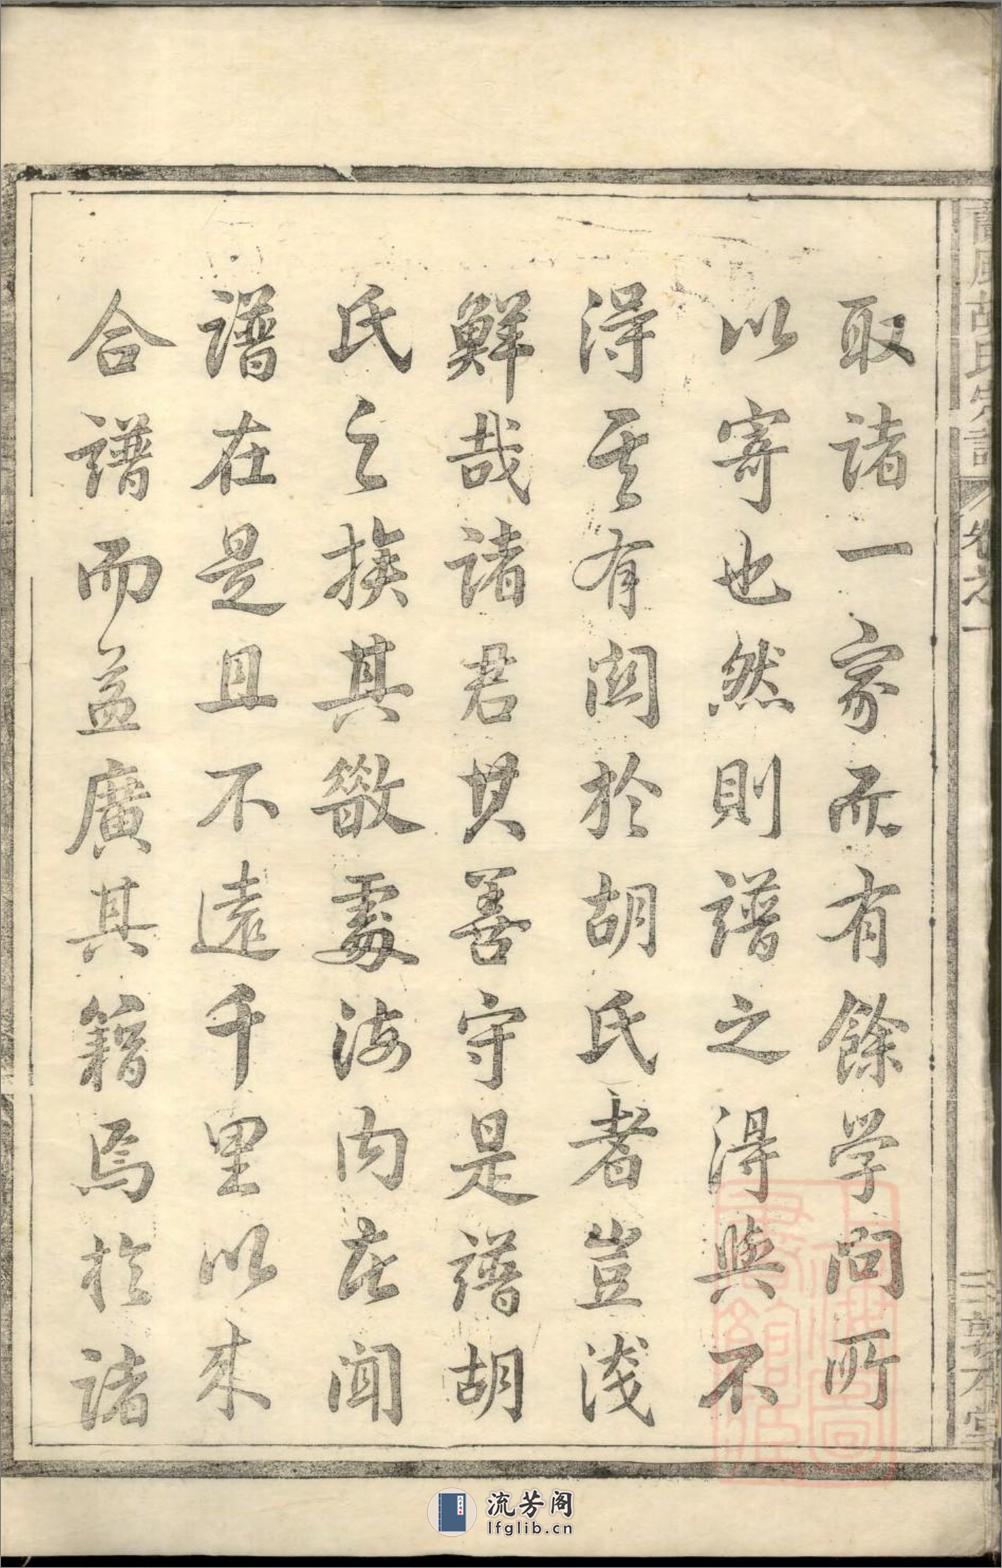 取諸一家而有餘学问所
以寄也然則譜之得與不
得其有関於胡氏者豈淺
鮮哉諸君其善守是譜胡
氏之族其散處海内在聞
譜在是且不遠千里以来
合譜而益廣其籍焉於諸
蘭風胡氏宗譜
卷之一
二
敦本堂
流芳阁
lfglib.cn